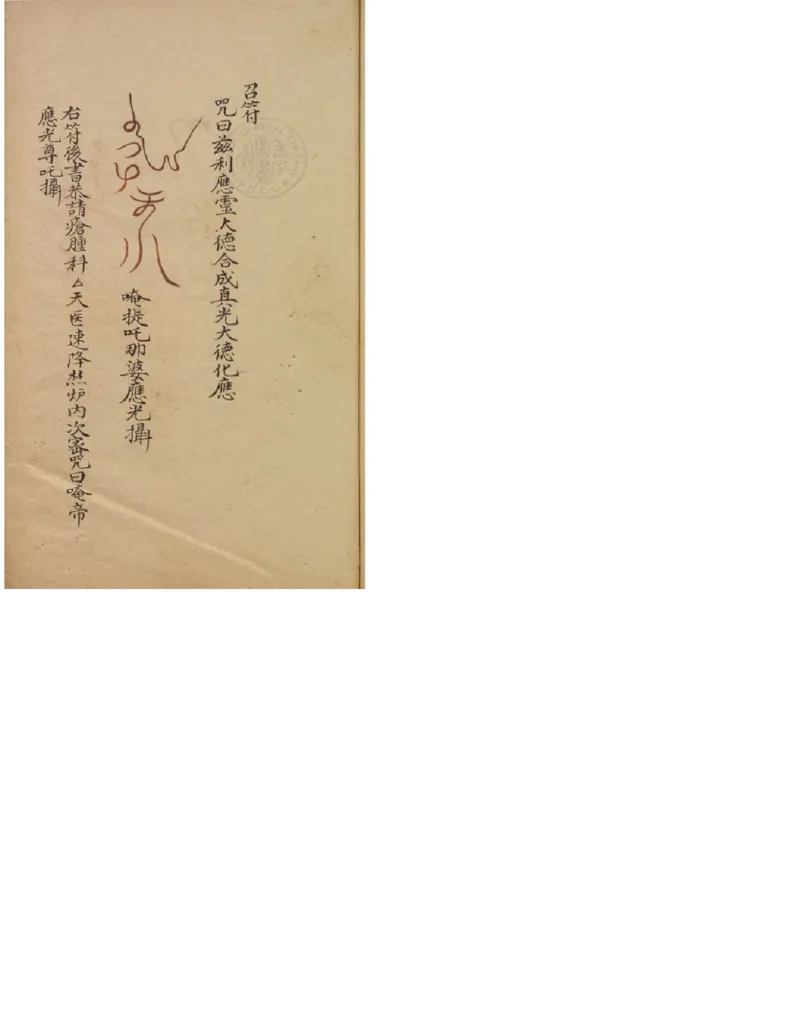 召符
咒曰兹利應霊大德合成真光大德化應
唵提吒那婆應光攝
右符後書恭請瘡腫科厶天医速降焚炉内次密咒曰唵帝
應光尊吒攝